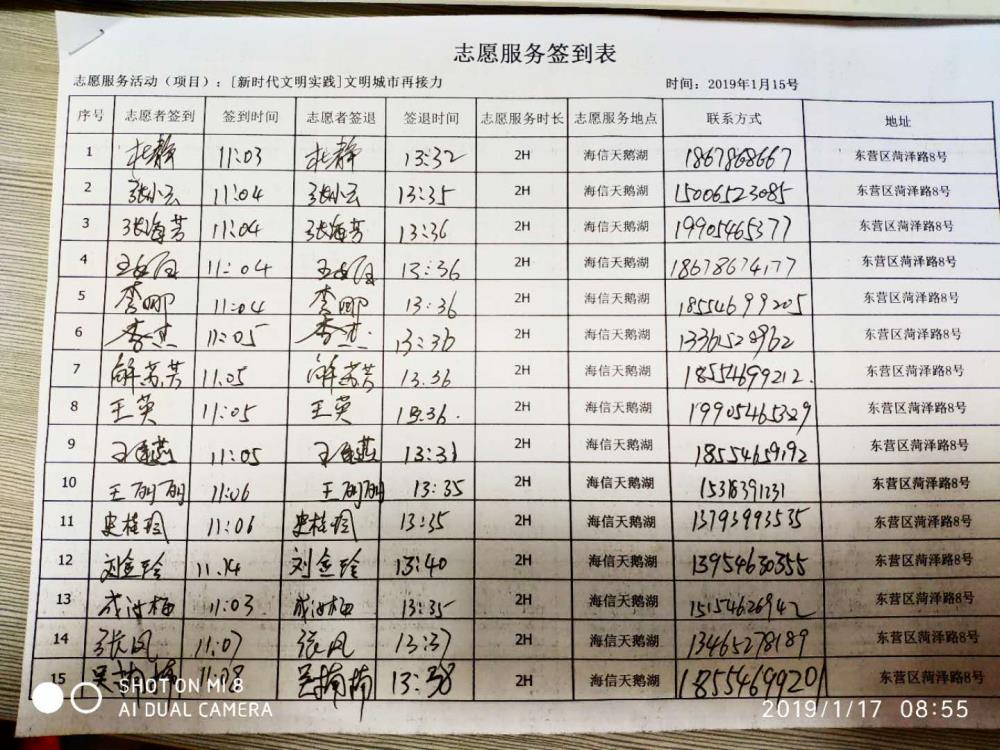 志愿服务签到表
志愿服务活动（项目）：[新时代文明实践]文明城市再接力 时间：2019年1月15号
序号 志愿者签到 签到时间 志愿者签退 签退时间 志愿服务时长 志愿服务地点 联系方式 地址
1 杜静 11:03 杜静 13:32 2H 海信天鹅湖 1867868667 东营区菏泽路8号
2 张小云 11:04 张小云 13:35 2H 海信天鹅湖 15006523085 东营区菏泽路8号
3 张海芳 11:04 张海芳 13:36 2H 海信天鹅湖 19905465377 东营区菏泽路8号
4 11:04 13:36 2H 海信天鹅湖 18678674177 东营区菏泽路8号
5 李娜 11:04 李娜 13:36 2H 海信天鹅湖 18554699205 东营区菏泽路8号
6 11:05 13:36 2H 海信天鹅湖 东营区菏泽路8号
7 解苏芸 11.05 解苏芸 13.36 2H 海信天鹅湖 18554699212. 东营区菏泽路8号
8 王英 11:05 王英 13.36. 2H 海信天鹅湖 19905465329 东营区菏泽路8号
9 11:05 13:31 2H 海信天鹅湖 18554659192 东营区菏泽路8号
10 王丽丽 11:06 王丽丽 13:35 2H 海信天鹅湖 15318391231 东营区菏泽路8号
11 史桂玲 11:06 史桂玲 13:35 2H 海信天鹅湖 13793993535 东营区菏泽路8号
12 刘金玲 11.14 刘金玲 13:40 2H 海信天鹅湖 13954630355 东营区菏泽路8号
13 11:03 13:35 2H 海信天鹅湖 15154626942 东营区菏泽路8号
14 张凤 11:07 张凤 13:37 2H 海信天鹅湖 13465278189 东营区菏泽路8号
15 吴楠楠 11:08 吴楠楠 13:38 2H 海信天鹅湖 18554699201 东营区菏泽路8号
SHOT ON MI 8
AI DUAL CAMERA
2019/1/17 08:55